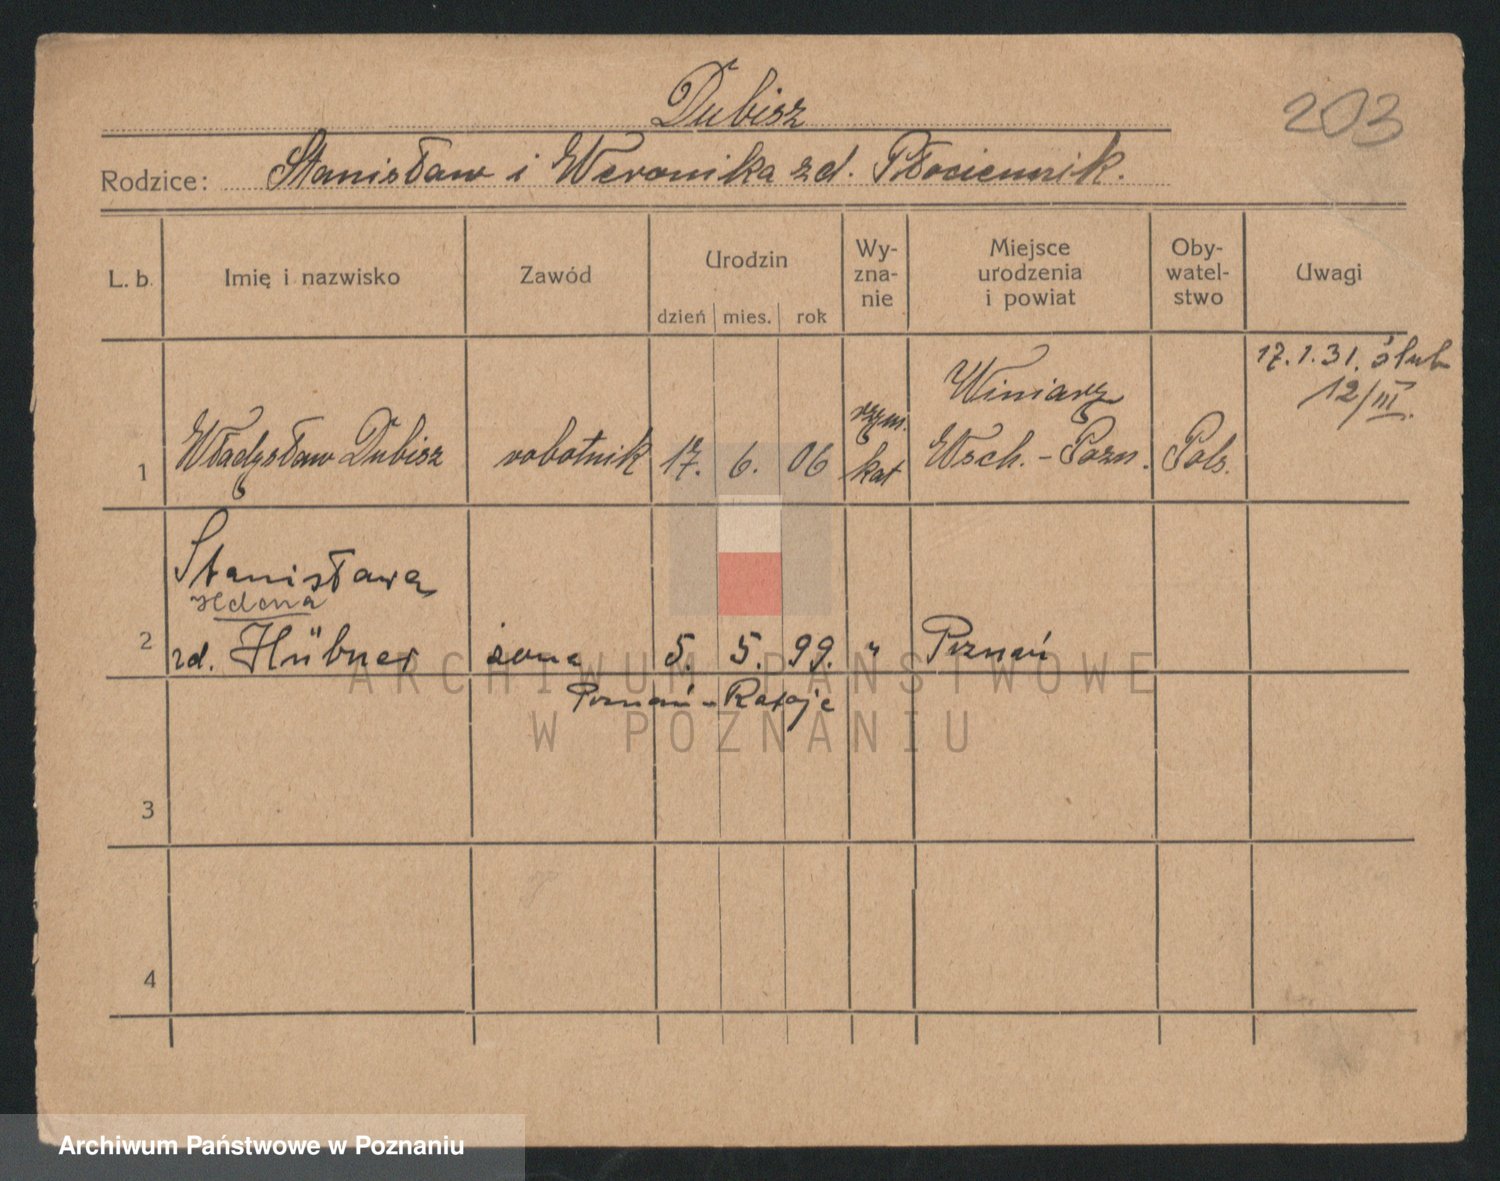 Dubisz
203
Rodzice: Stanisław i Weronika zd. Płóciennik.
L. b. Imię i nazwisko Zawód Urodzin Wy- Miejsce Oby- Uwagi
zna- urodzenia watel-
nie i powiat stwo
dzień mies. rok
17. 1. 31. ślub
12/III.
1 Władysław Dubisz robotnik 17. 6. 06 rzym. Winiarz Pols.
kat Wsch. - Pozn.
Stanisława
2 zd. Hübner żona 5. 5. 99. " Poznań
Poznań - Rataje
3
4
ARCHIWUM PAŃSTWOWE
W POZNANIU
Archiwum Państwowe w Poznaniu